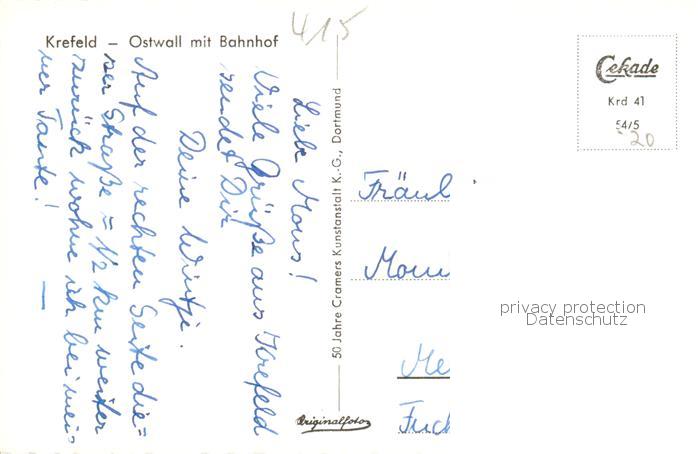 Krefeld – Ostwall mit Bahnhof
4/5
Liebe Mous!
Viele Grüße aus Krefeld
sendet Dir
Deine Wintje.
Auf der rechten Seite die=
ser Straße = 1/2 km weiter
zurück wohne ich bei mei=
ner Tante!
50 Jahre Cramers Kunstanstalt K.-G., Dortmund
Originalfoto
Cekade
Krd 41
54/5
20
Fräul
Me
Fuch
privacy protection
Datenschutz